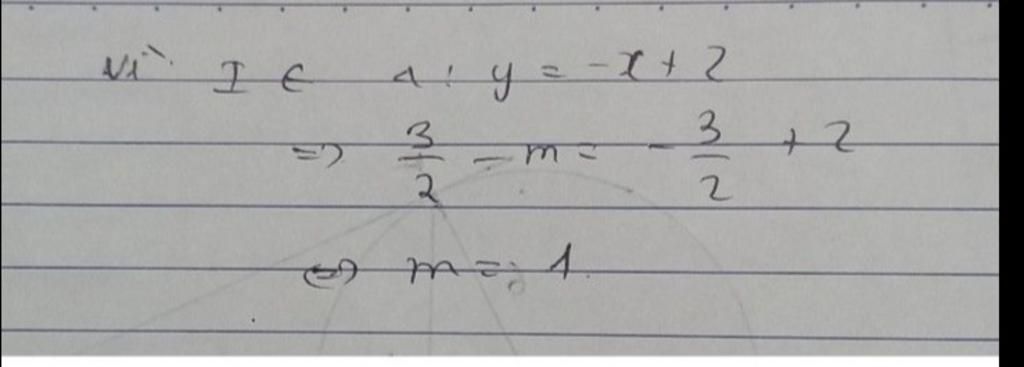 Vì I ∈ Δ: y = -x + 2
=> 3/2 - m = - 3/2 + 2
<=> m = 1.